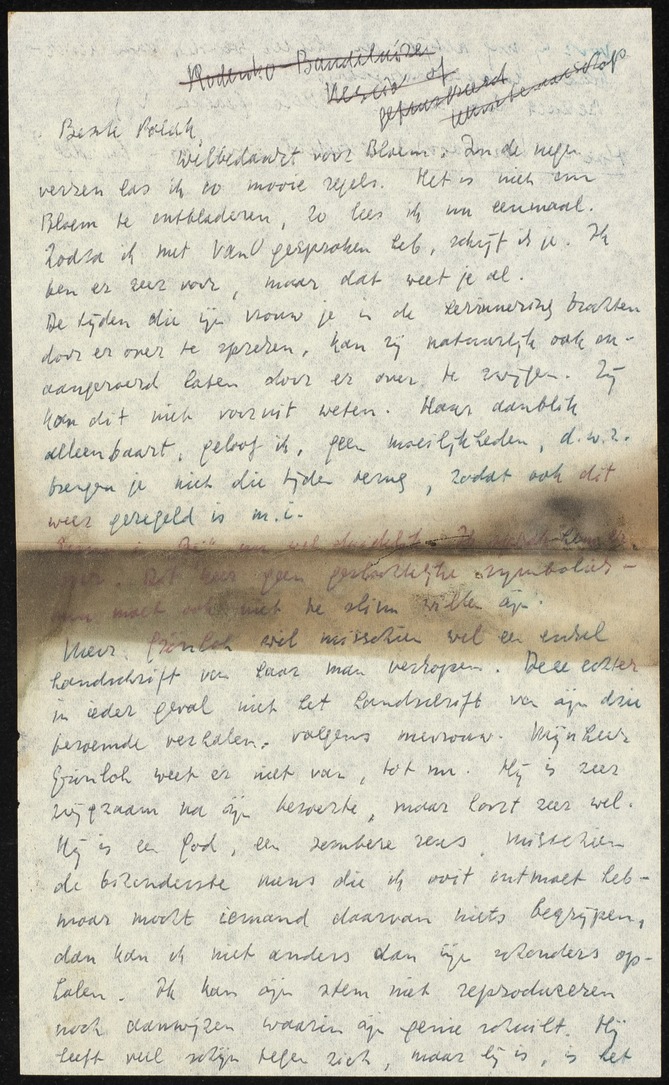 Rodenko - Baudelaire
Versie of
gefrustreerd
wetenschap
Beste Polak,
Welbedankt voor Bloem. In de negen
verzen las ik 20 mooie regels. Het is niet om
Bloem te ontbladeren, zo lees ik nu eenmaal.
Zodra ik met Van O gesproken heb, schrijf ik je. Ik
ben er zeer voor, maar dat weet je al.
De tijden die zijn vrouw je in de herinnering brachten
door er over te spreken, kan zij natuurlijk ook on-
aangeroerd laten door er over te zwijgen. Zij
kon dit niet vooruit weten. Haar aanblik
alleen baart, geloof ik, geen moeilijkheden, d.w.z.
brengen je niet die tijden terug, zodat ook dit
weer geregeld is m.i.
Dat heeft geen symbolies-
moet ook niet te slim willen zijn.
Mevr. Grönloh wil misschien wel een enkel
handschrift van haar man verkopen. Deze echter
in ieder geval niet het handschrift van zijn drie
beroemde verhalen, volgens mevrouw. Mijnheer
Grönloh weet er niet van, tot nu. Hij is zeer
zwijgzaam na zijn beroerte, maar hoort zeer wel.
Hij is een God, een zenuwe misschien
de bizonderste mens die ik ooit ontmoet heb -
maar mocht iemand daarvan niets begrijpen,
dan kan ik niet anders dan mijn schouders op-
halen. Ik kan zijn stem niet reproduceren
noch aanwijzen waarin zijn genie schuilt. Hij
heeft veel schijn tegen zich, maar hij is, is het